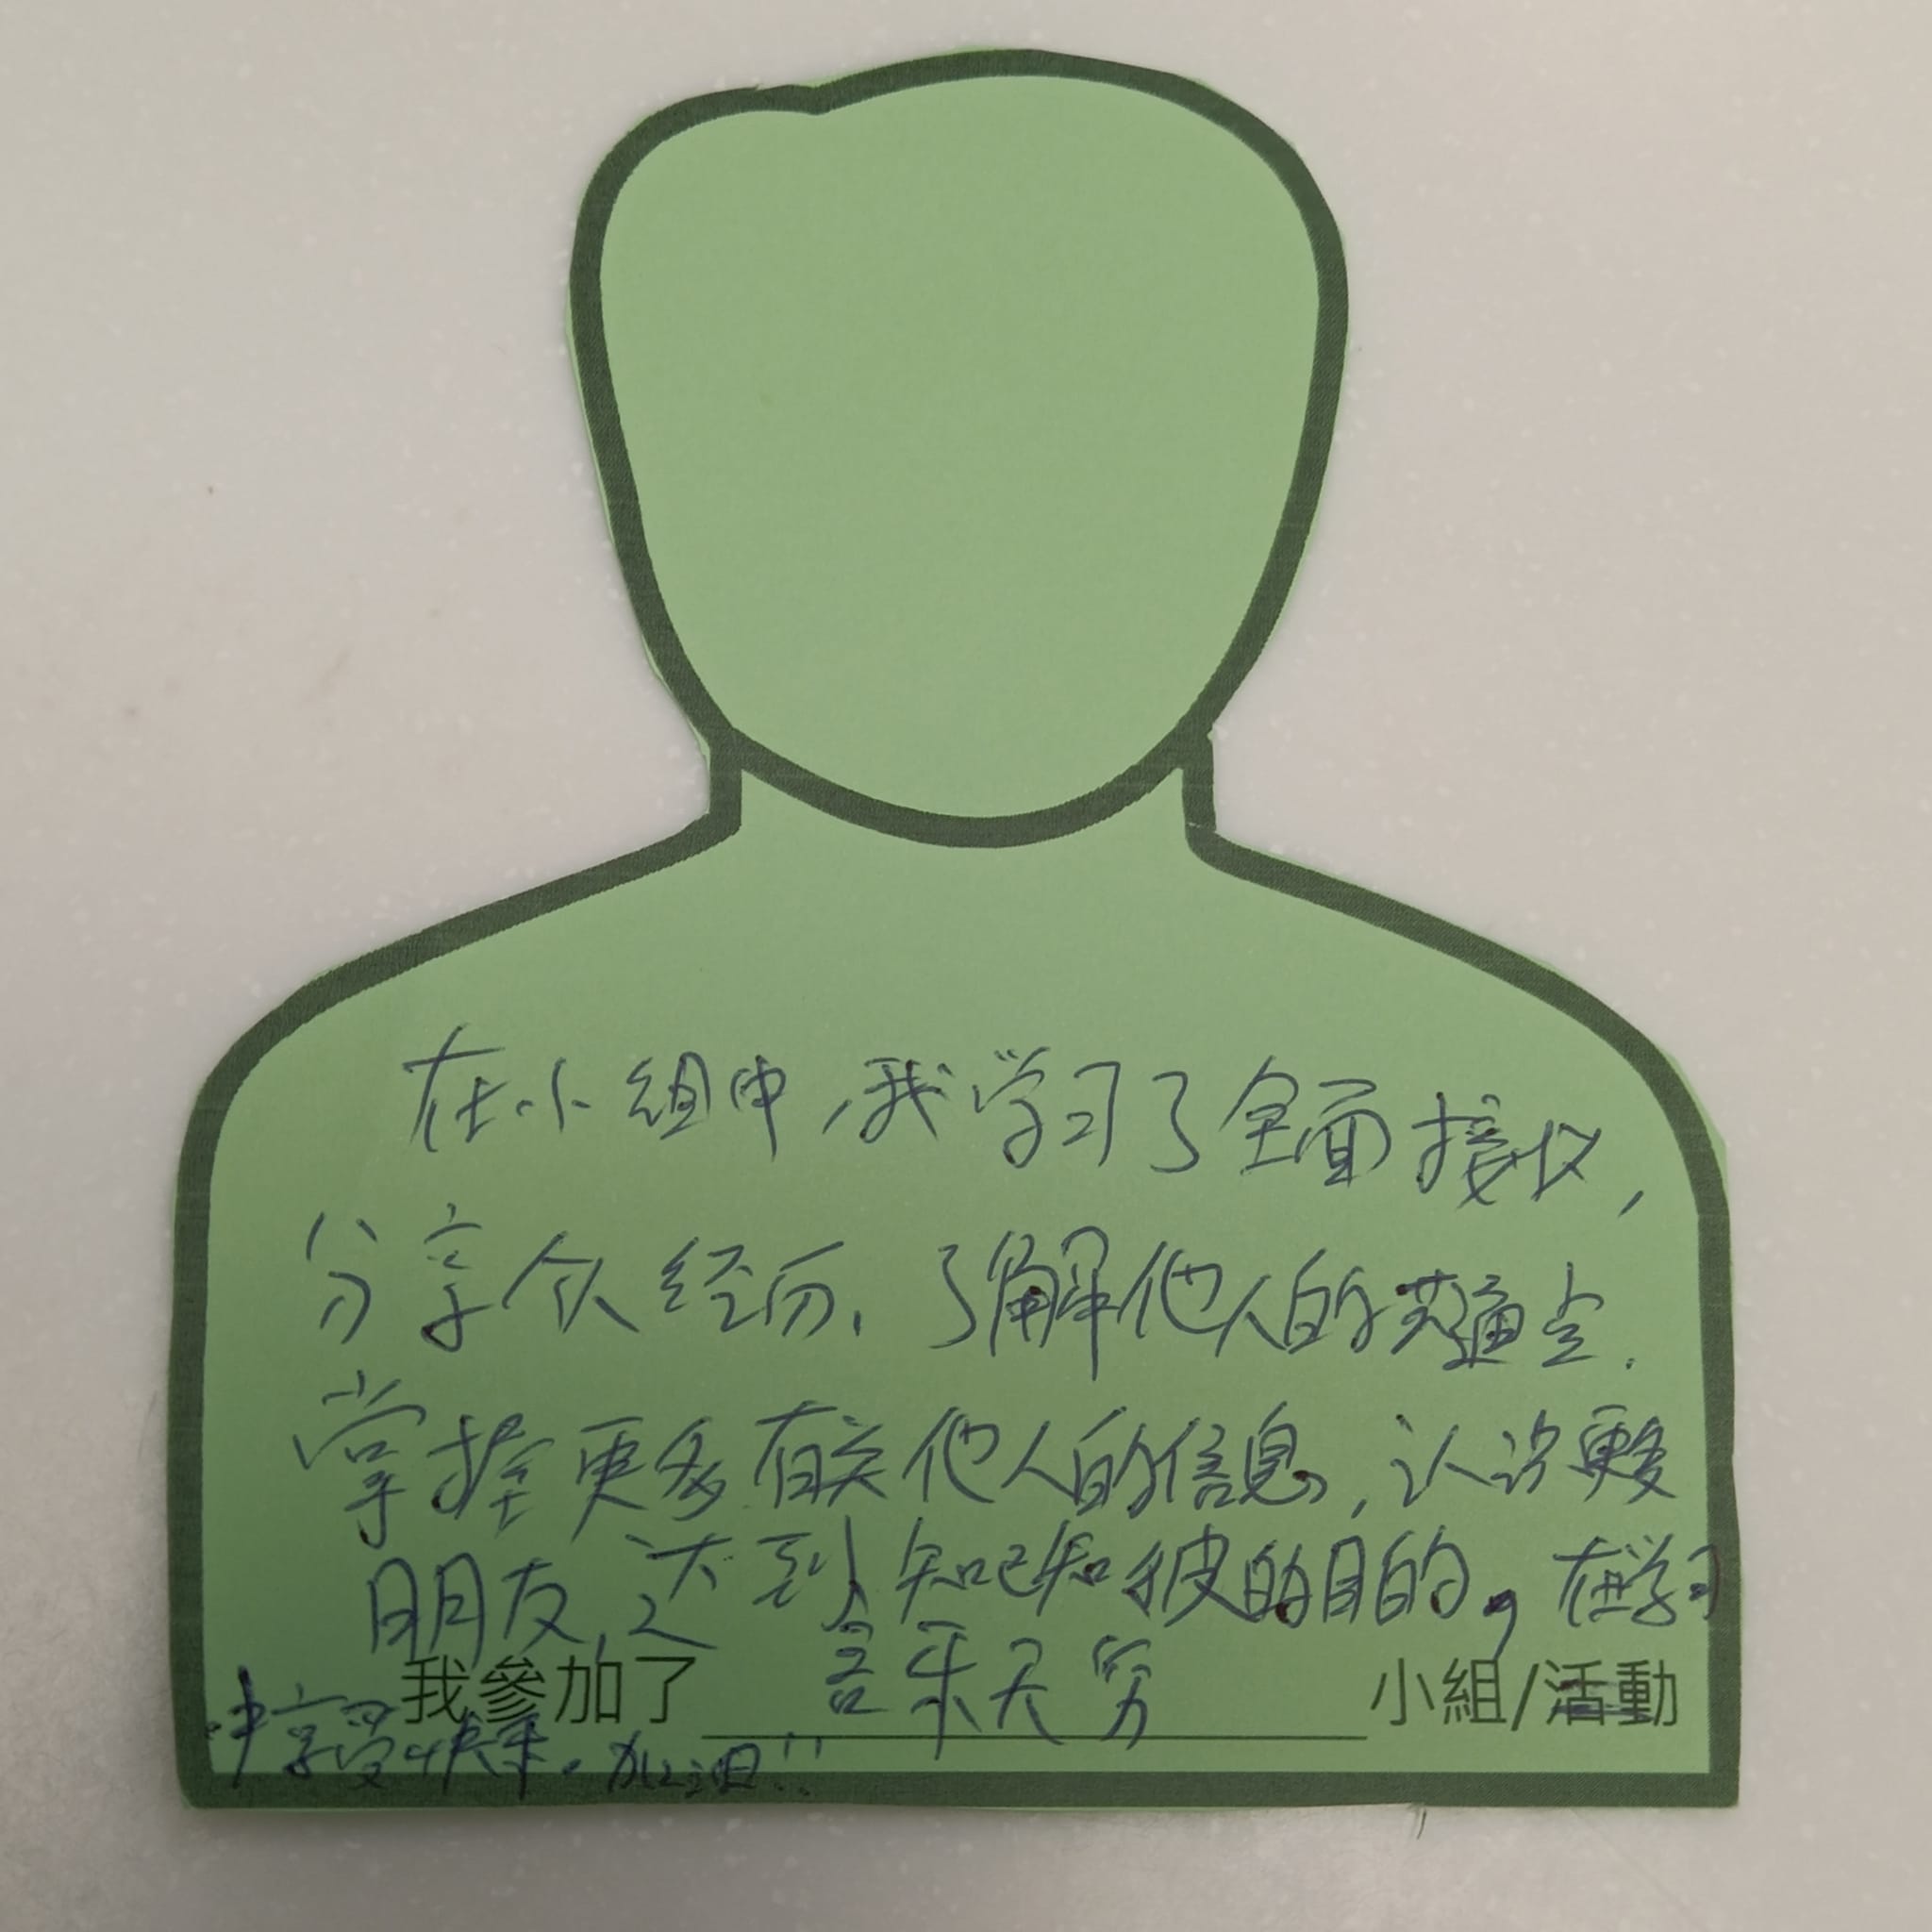 在小组中,我学习了全面接收,
分享个人经历,了解他人的共通点.
掌握更多有关他人的信息,认识更多
朋友,达到知己知彼的目的,在学习
我參加了 言乐无穷 小組/活動
中享受快乐。加油!!